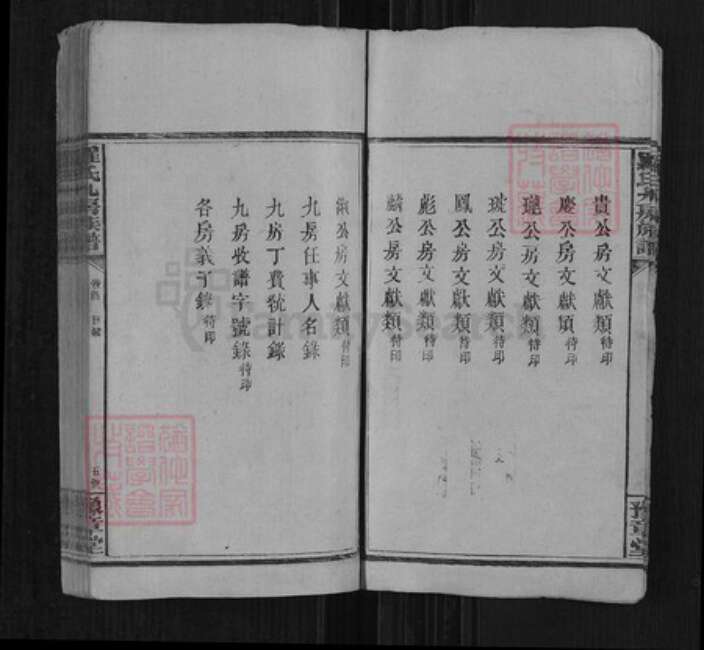 貴公房文獻類待印
慶公房文獻類待印
公房文獻類待印
公房文獻類待印
鳳公房文獻類待印
彪公房文獻類待印
麟公房文獻類待印
公房文獻類待印
九房任事人名錄
九房丁費統計錄
九房收譜字號錄待印
各房義子錄待印
羅氏九房族譜
卷首 目錄
豫章堂
羅氏九房族譜
豫章堂
FamilySearch